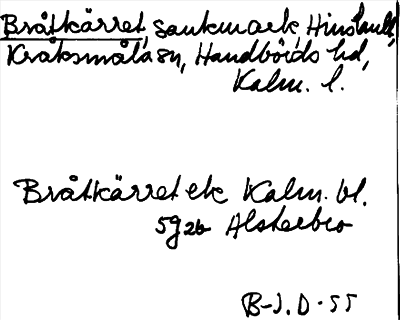 Bråtkärret, sankmark, Hinshult,
Kråksmåla sn, Handbörds hd,
Kalm. l.
Bråtkärret ek Kalm. bl.
5g2b Alsterbro
B-J. D. 55